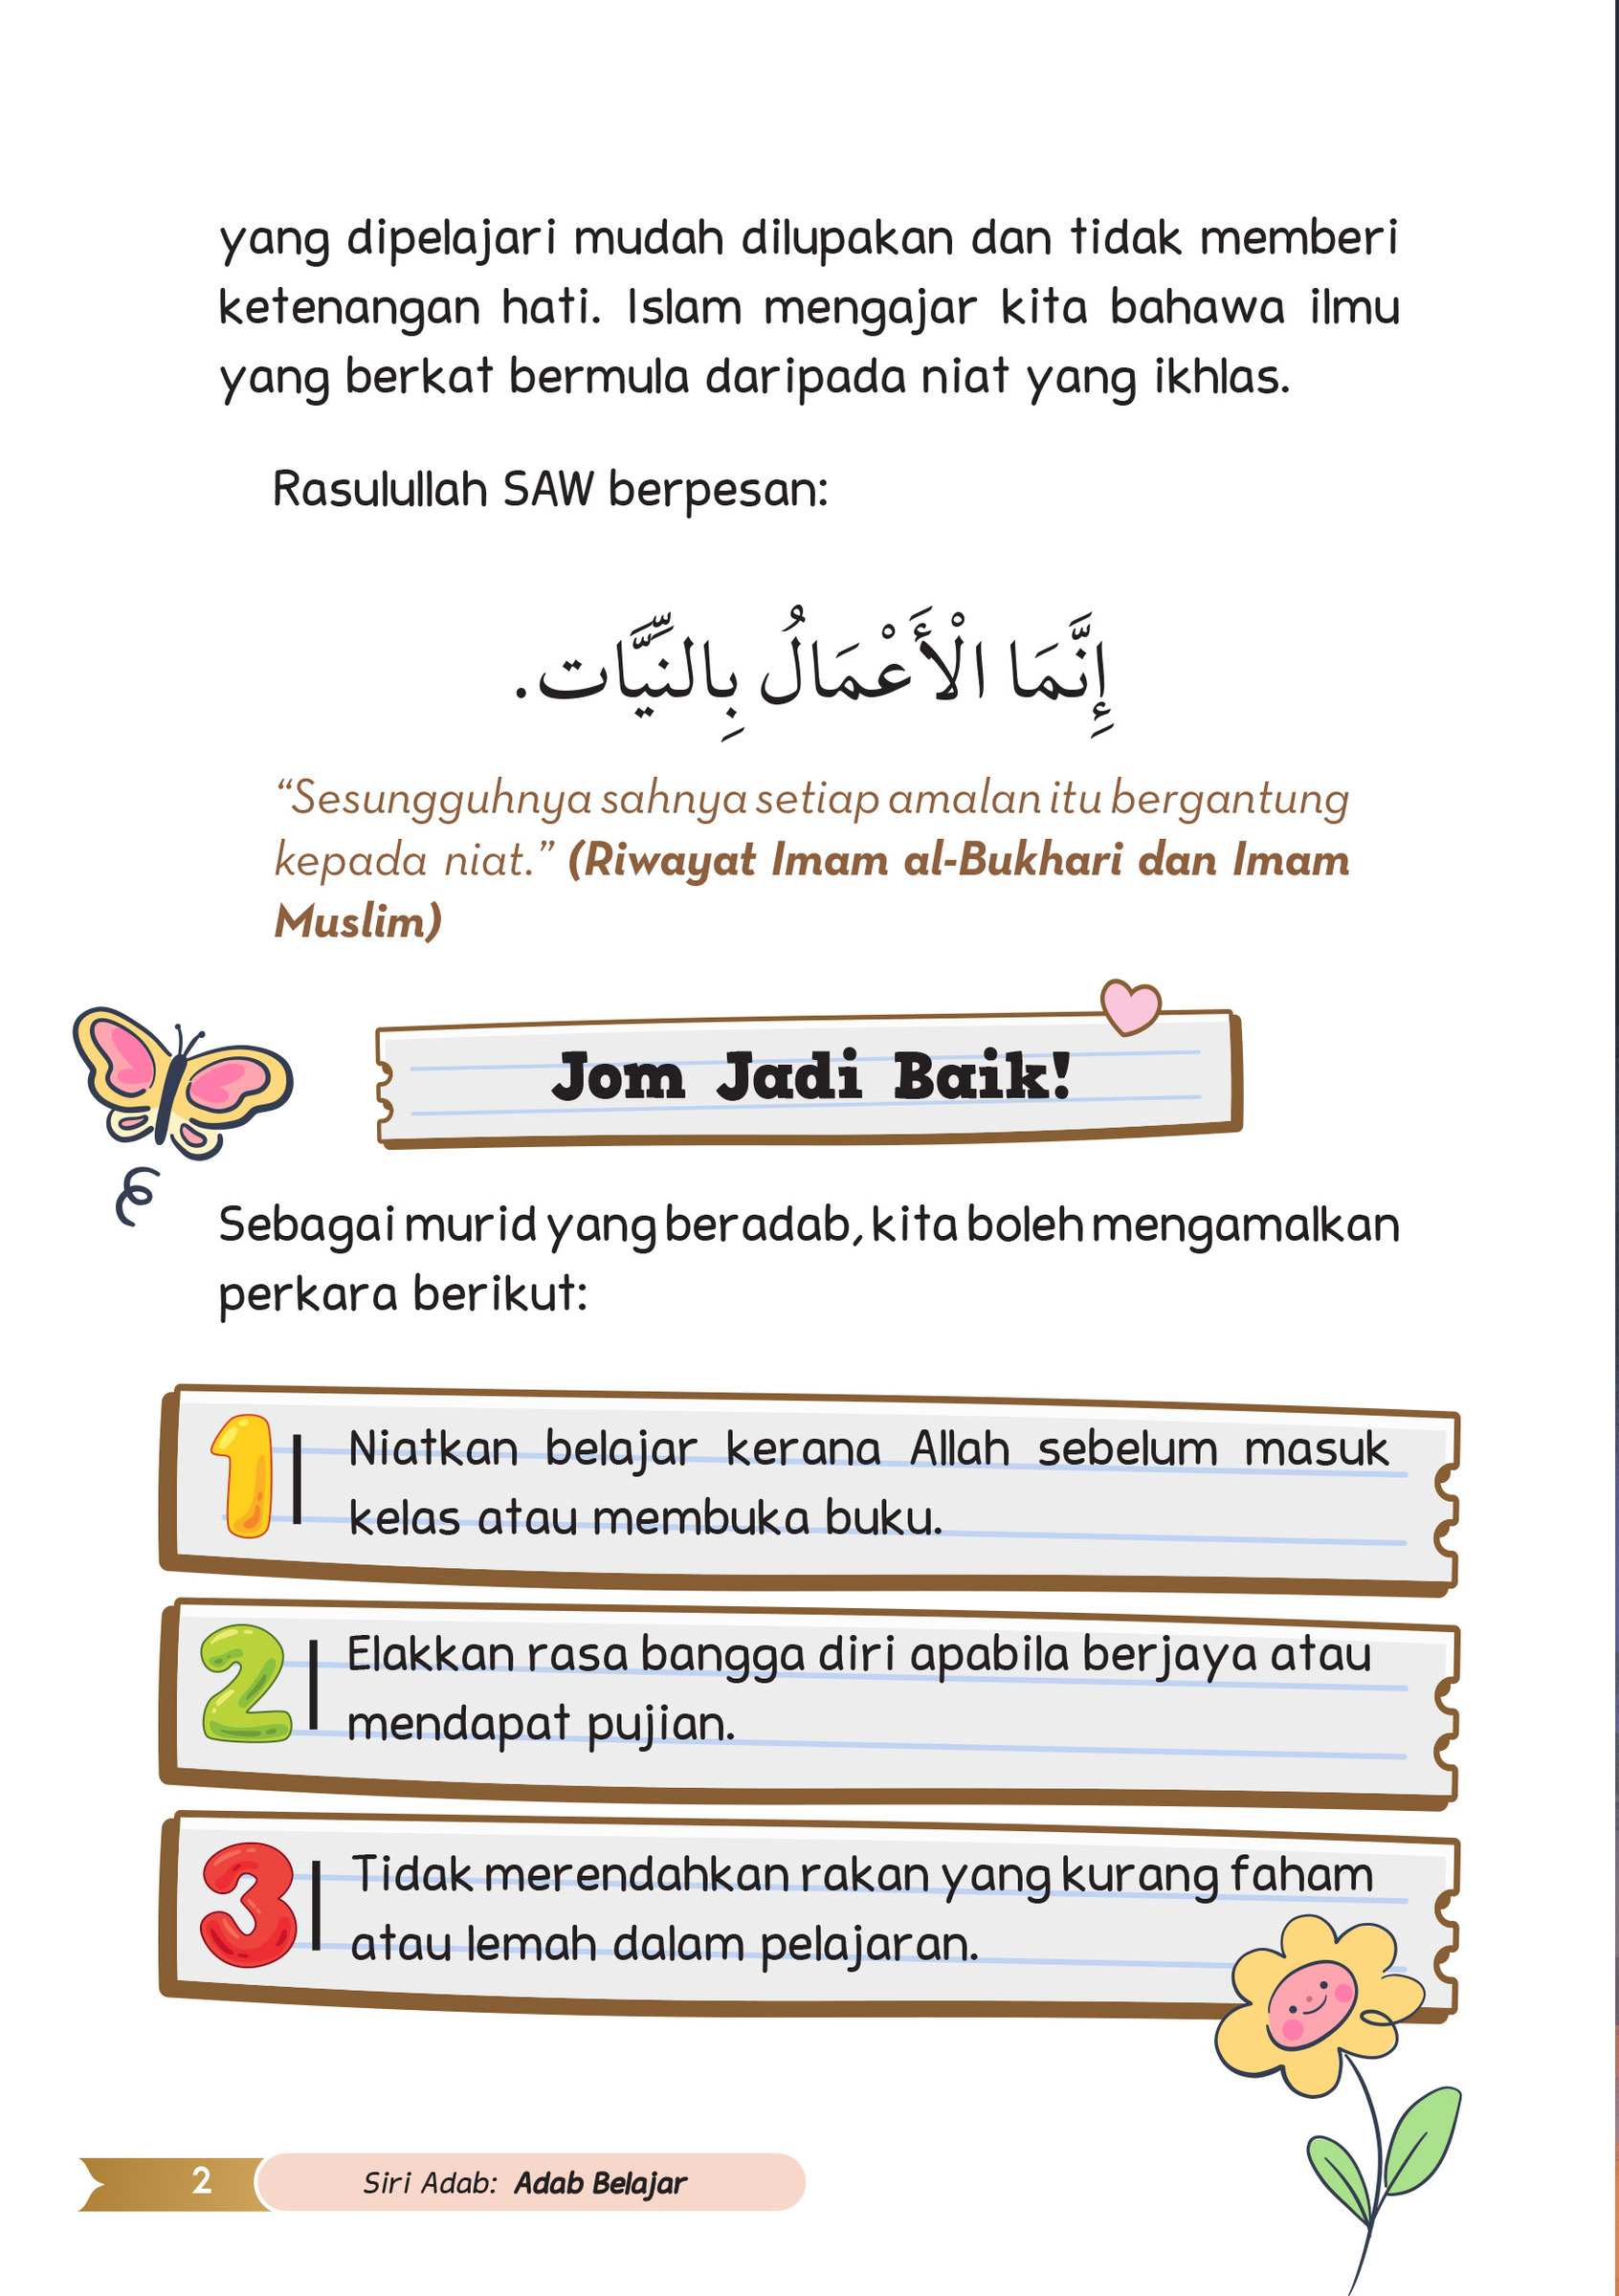 yang dipelajari mudah dilupakan dan tidak memberi
ketenangan hati. Islam mengajar kita bahawa ilmu
yang berkat bermula daripada niat yang ikhlas.
Rasulullah SAW berpesan:
إِنَّمَا الْأَعْمَالُ بِالنِّيَّات.
“Sesungguhnya sahnya setiap amalan itu bergantung
kepada niat.” (Riwayat Imam al-Bukhari dan Imam
Muslim)
Jom Jadi Baik!
Sebagai murid yang beradab, kita boleh mengamalkan
perkara berikut:
1 Niatkan belajar kerana Allah sebelum masuk
kelas atau membuka buku.
2 Elakkan rasa bangga diri apabila berjaya atau
mendapat pujian.
3 Tidak merendahkan rakan yang kurang faham
atau lemah dalam pelajaran.
2 Siri Adab: Adab Belajar